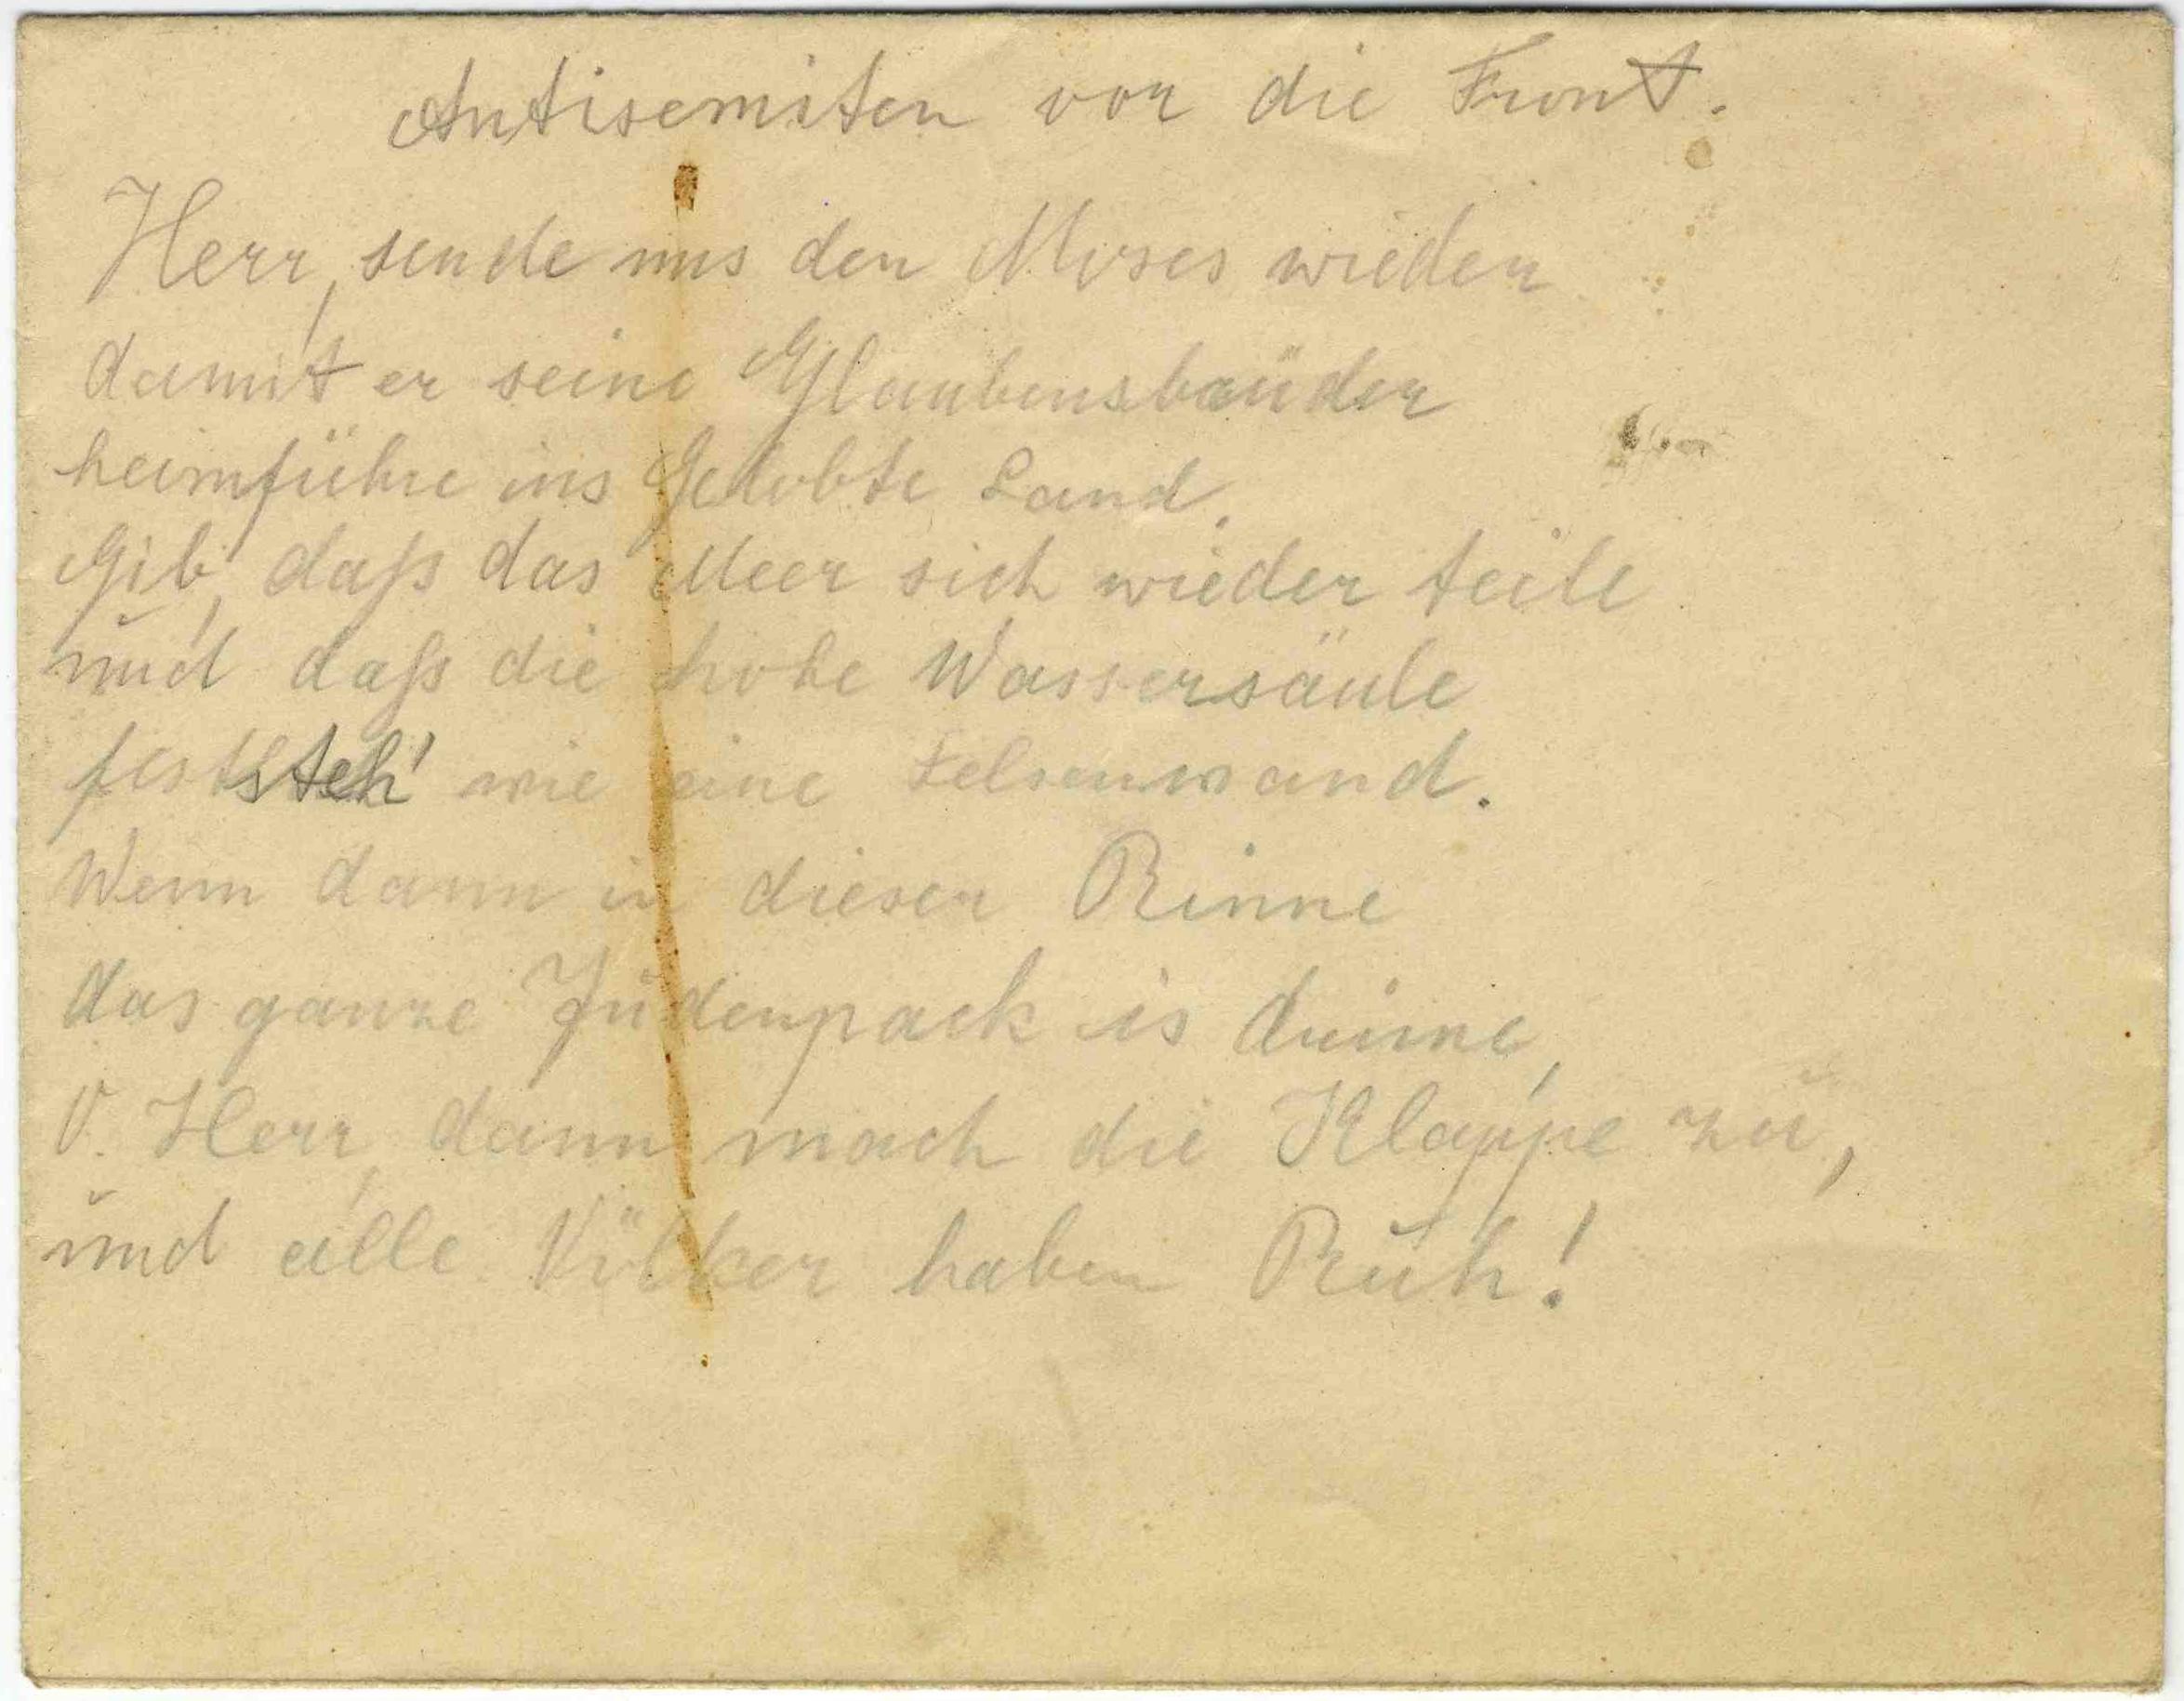 Antisemiten vor die Front.
Herr, sende uns den Moses wieder
damit er seine Glaubensbrüder
heimführe ins Gelobte Land.
Gib, daß das Meer sich wieder teile
und daß die hohe Wassersäule
feststeh' wie eine Felsenwand.
Wenn dann in dieser Rinne
das ganze Judenpack is drinne,
O. Herr, dann mach die Klappe zu,
und alle Völker haben Ruh!